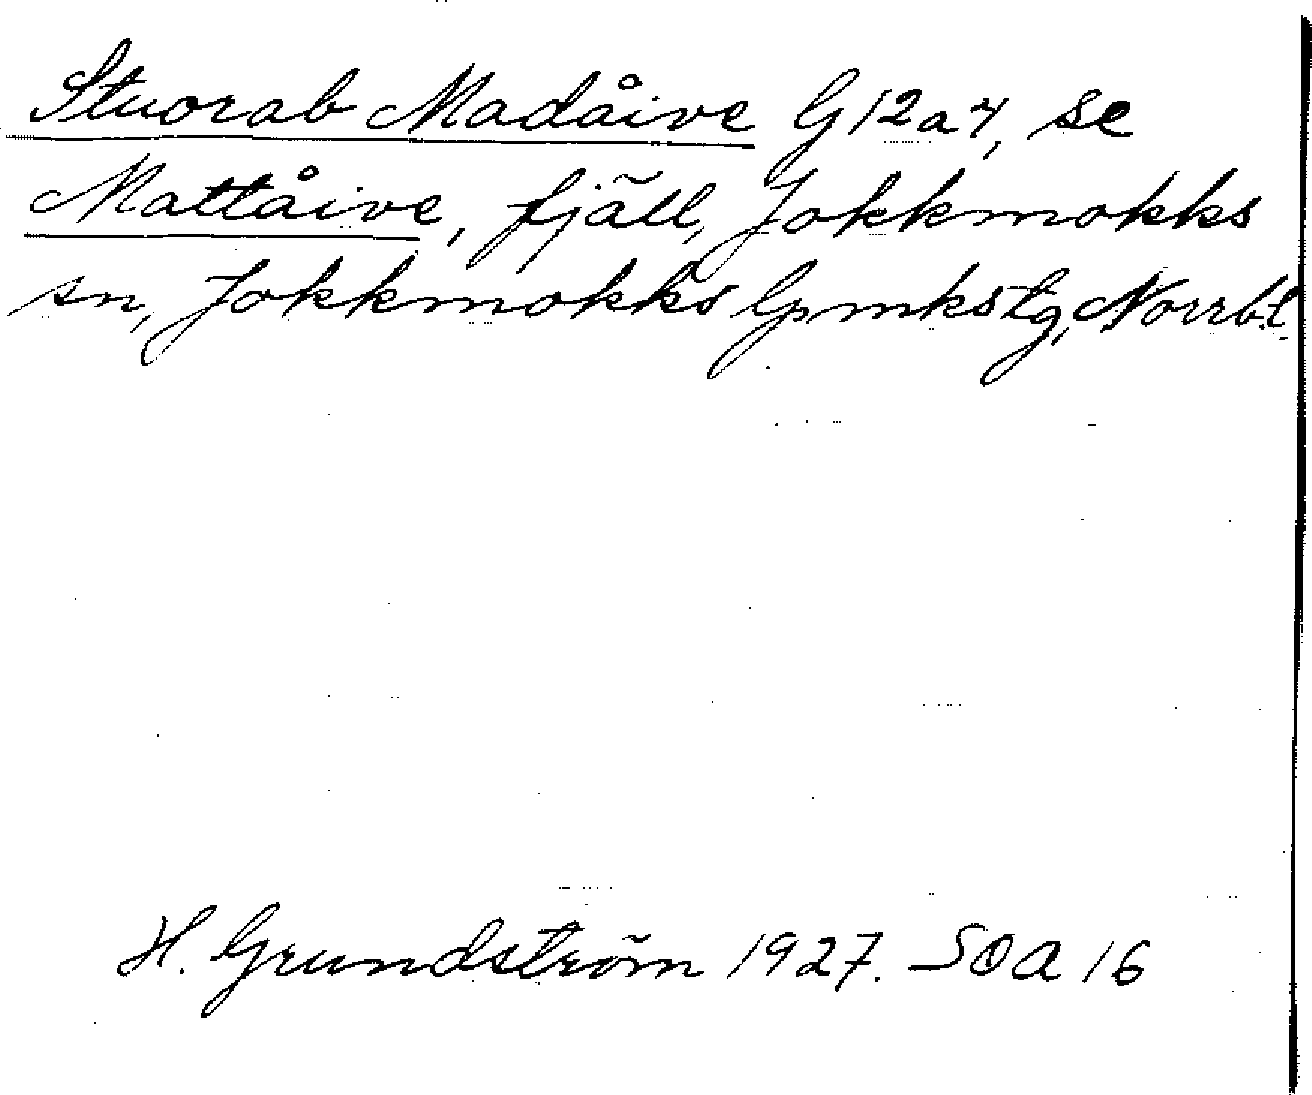 Stuorab Madåive G12a7, se
Mattåive, fjäll, Jokkmokks
sn, Jokkmokks lpmkstg, Norrb.l.
H. Grundström 1927. SOA 16